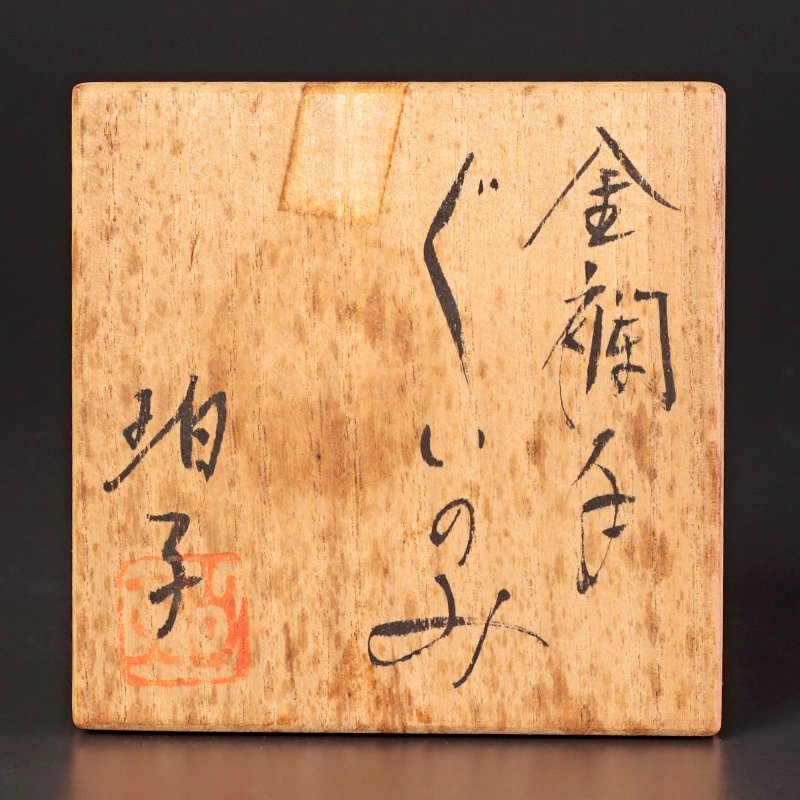 金襴手
ぐいのみ
珀子